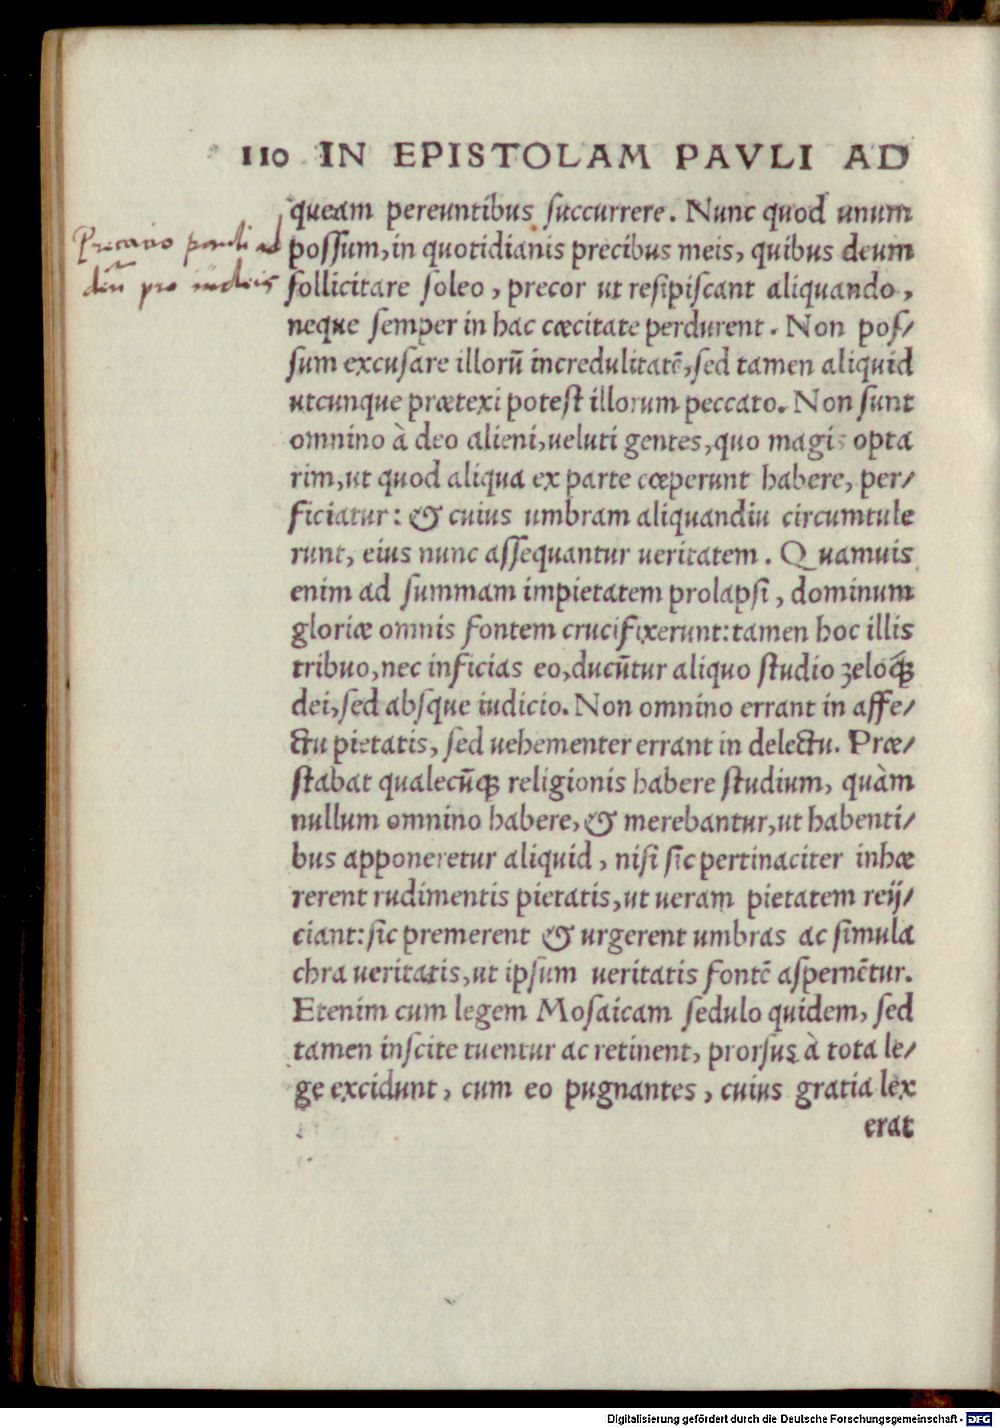 110 IN EPISTOLAM PAVLI AD
queam pereuntibus succurrere. Nunc quod unum
Precatio pauli ad
deū pro iudeis
possum, in quotidianis precibus meis, quibus deum
sollicitare soleo, precor ut resipiscant aliquando,
neque semper in hac cæcitate perdurent. Non pos/
sum excusare illorū incredulitatē, sed tamen aliquid
utcunque prætexi potest illorum peccato. Non sunt
omnino à deo alieni, ueluti gentes, quo magis opta
rim, ut quod aliqua ex parte cœperunt habere, per/
ficiatur: & cuius umbram aliquandiu circumtule
runt, eius nunc assequantur ueritatem. Quamuis
enim ad summam impietatem prolapsi, dominum
gloriæ omnis fontem crucifixerunt: tamen hoc illis
tribuo, nec inficias eo, ducūtur aliquo studio zeloq́;
dei, sed absque iudicio. Non omnino errant in affe/
ctu pietatis, sed uehementer errant in delectu. Præ/
stabat qualecūq; religionis habere studium, quàm
nullum omnino habere, & merebantur, ut habenti/
bus apponeretur aliquid, nisi sic pertinaciter inhæ
rerent rudimentis pietatis, ut ueram pietatem reij/
ciant: sic premerent & urgerent umbras ac simula
chra ueritatis, ut ipsum ueritatis fontē aspernētur.
Etenim cum legem Mosaicam sedulo quidem, sed
tamen inscite tuentur ac retinent, prorsus à tota le/
ge excidunt, cum eo pugnantes, cuius gratia lex
erat
Digitalisierung gefördert durch die Deutsche Forschungsgemeinschaft - DFG